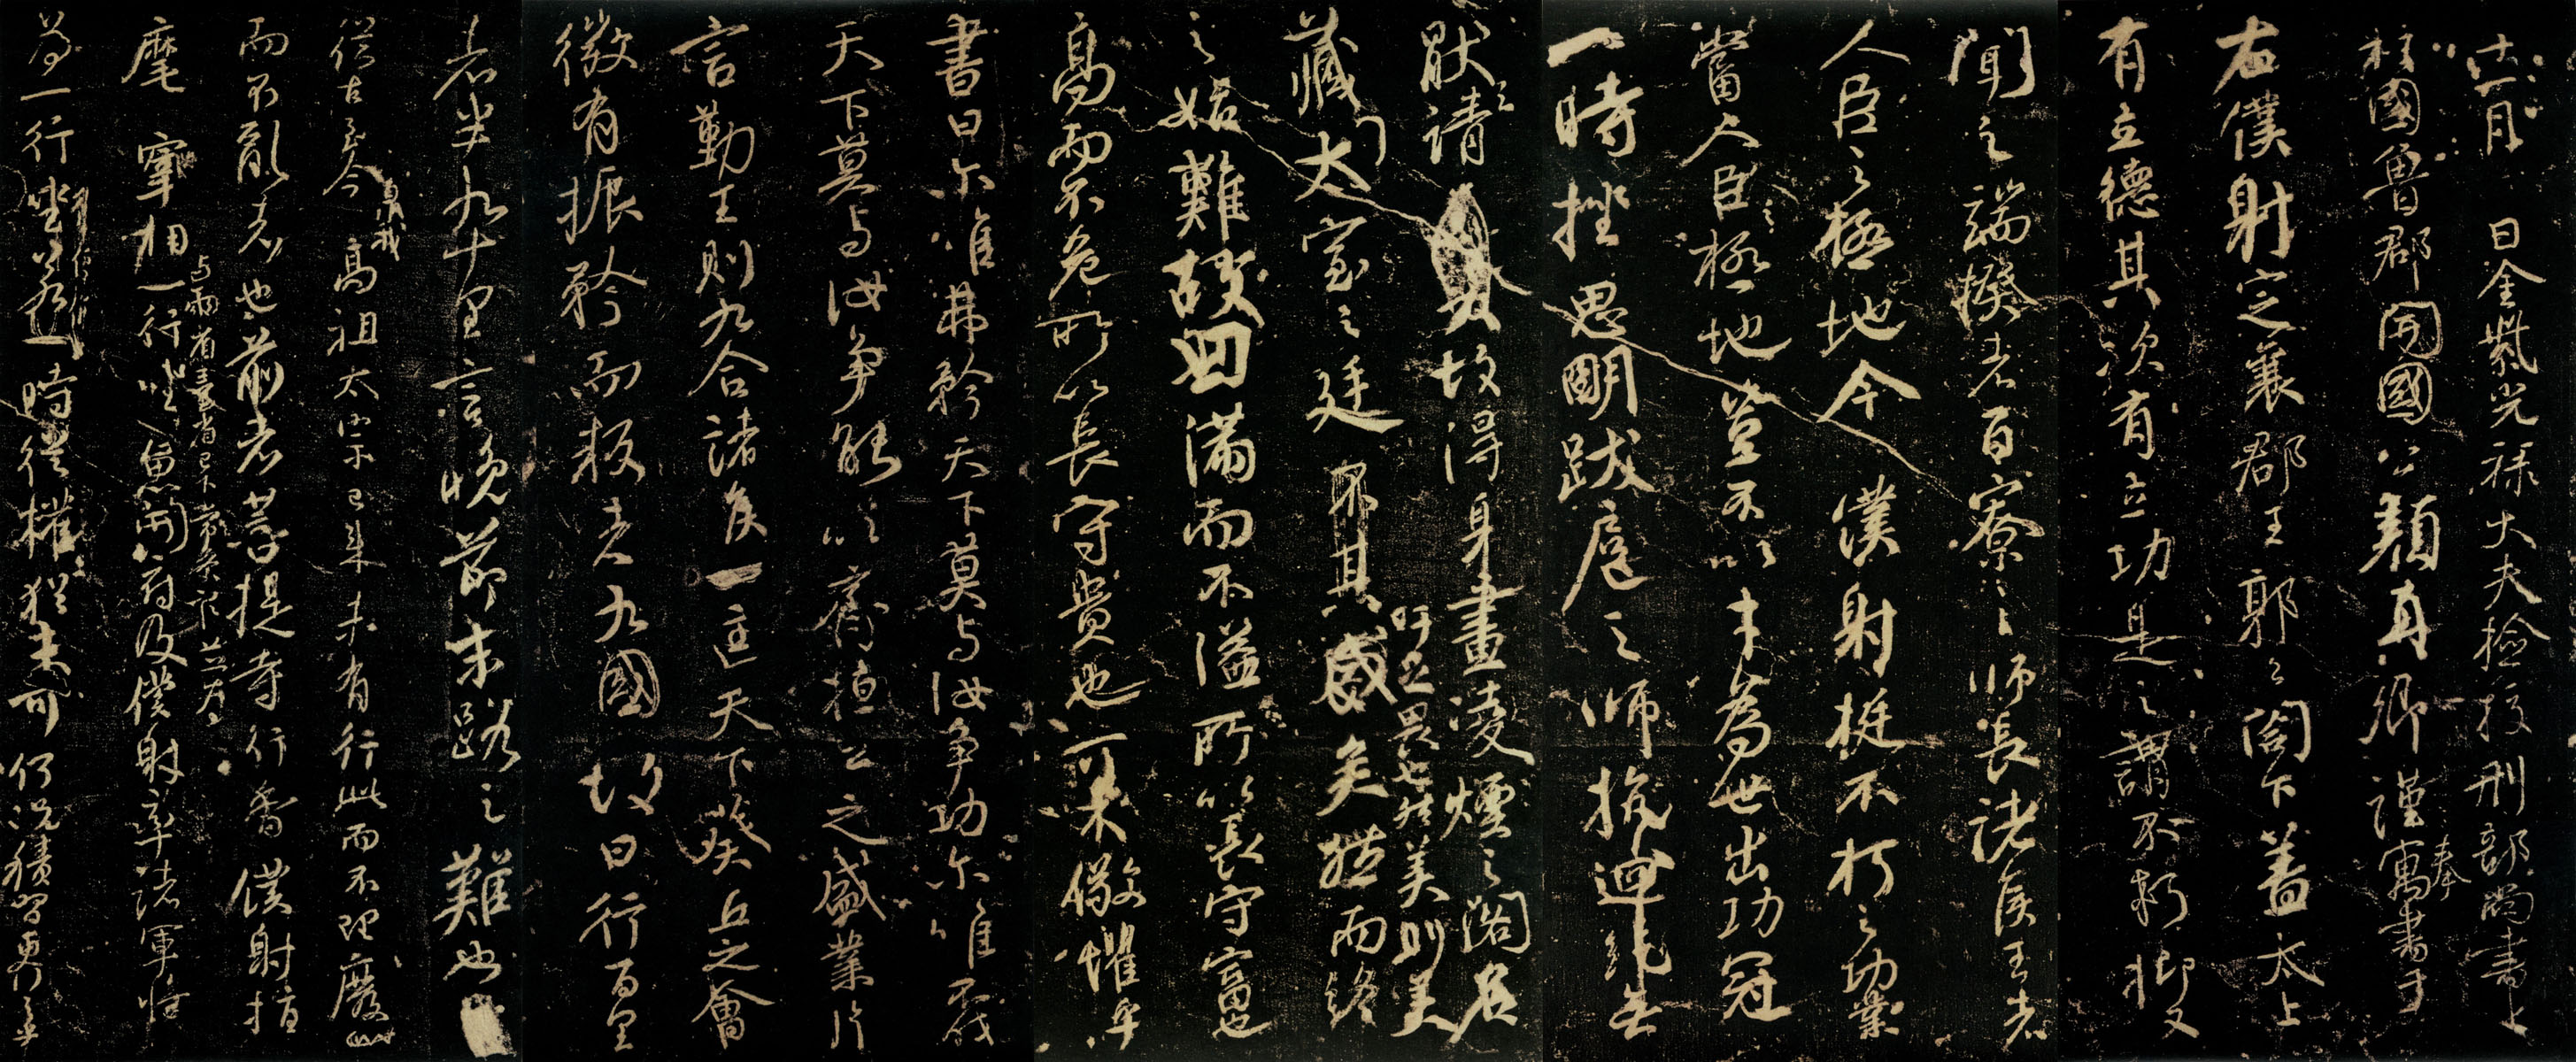 十一月日金紫光禄大夫檢校刑部尚書上
柱國魯郡開國公顔真卿謹奉寓書于
右僕射定襄郡王郭公閤下蓋太上
有立德其次有立功是之謂不朽抑又
聞之端揆者百寮之師長諸侯王者
人臣之極地今僕射挺不朽之功業
當人臣之極地豈不以才為世出功冠
一時挫思明跋扈之師抗迴紇無
厭之請故得身畫淩煙之閣名
藏太室之廷吁足畏也然美則美
矣然而終
之始難故曰滿而不溢所以長守富也
高而不危所以長守貴也可不儆懼乎
書曰尔唯弗矜天下莫与汝争功尔唯不伐
天下莫与汝争能以齊桓公之盛業片
言勤王則九合諸侯一匡天下葵丘之會
微有振矜而叛者九國故曰行百里
者半九十里言晚節末路之難也
從古至今曁我高祖太宗已来未有行此而不理廢
而不亂者也前者菩提寺行香僕射指
麾宰相与兩省臺省已下常条官並為一行坐魚開府及僕射率諸軍将
為一行坐若一時從權猶未可何況積習更行之乎